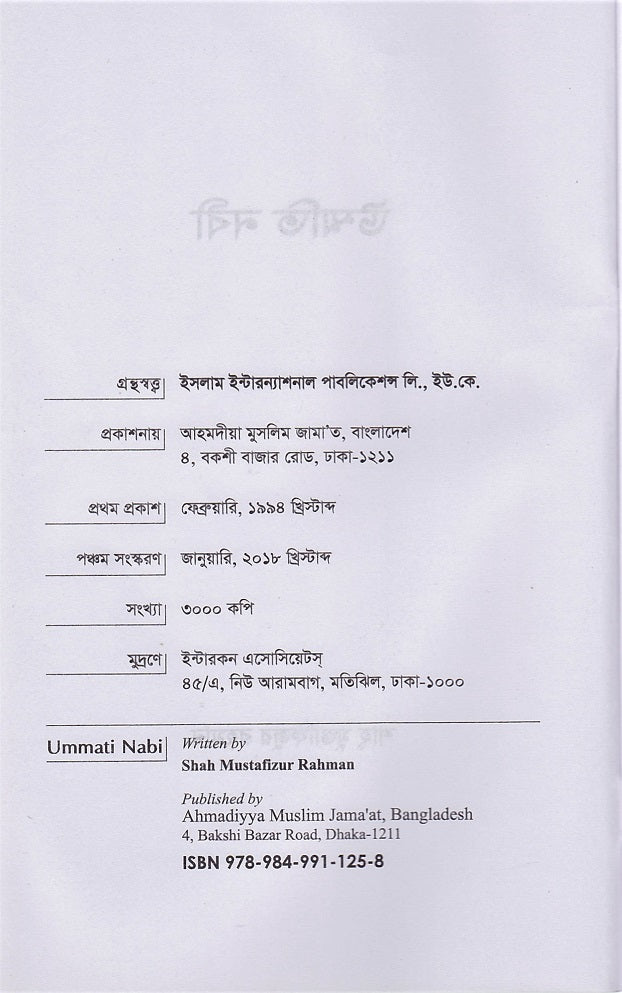 উম্মতি নবী
গ্রন্থস্বত্ত্ব ইসলাম ইন্টারন্যাশনাল পাবলিকেশন্স লি., ইউ.কে.
প্রকাশনায় আহমদীয়া মুসলিম জামা'ত, বাংলাদেশ
৪, বকশী বাজার রোড, ঢাকা-১২১১
প্রথম প্রকাশ ফেব্রুয়ারি, ১৯৯৪ খ্রিস্টাব্দ
পঞ্চম সংস্করণ জানুয়ারি, ২০১৮ খ্রিস্টাব্দ
সংখ্যা ৩০০০ কপি
মুদ্রণে ইন্টারকন এসোসিয়েটস্
৪৫/এ, নিউ আরামবাগ, মতিঝিল, ঢাকা-১০০০
Ummati Nabi Written by
Shah Mustafizur Rahman
Published by
Ahmadiyya Muslim Jama'at, Bangladesh
4, Bakshi Bazar Road, Dhaka-1211
ISBN 978-984-991-125-8